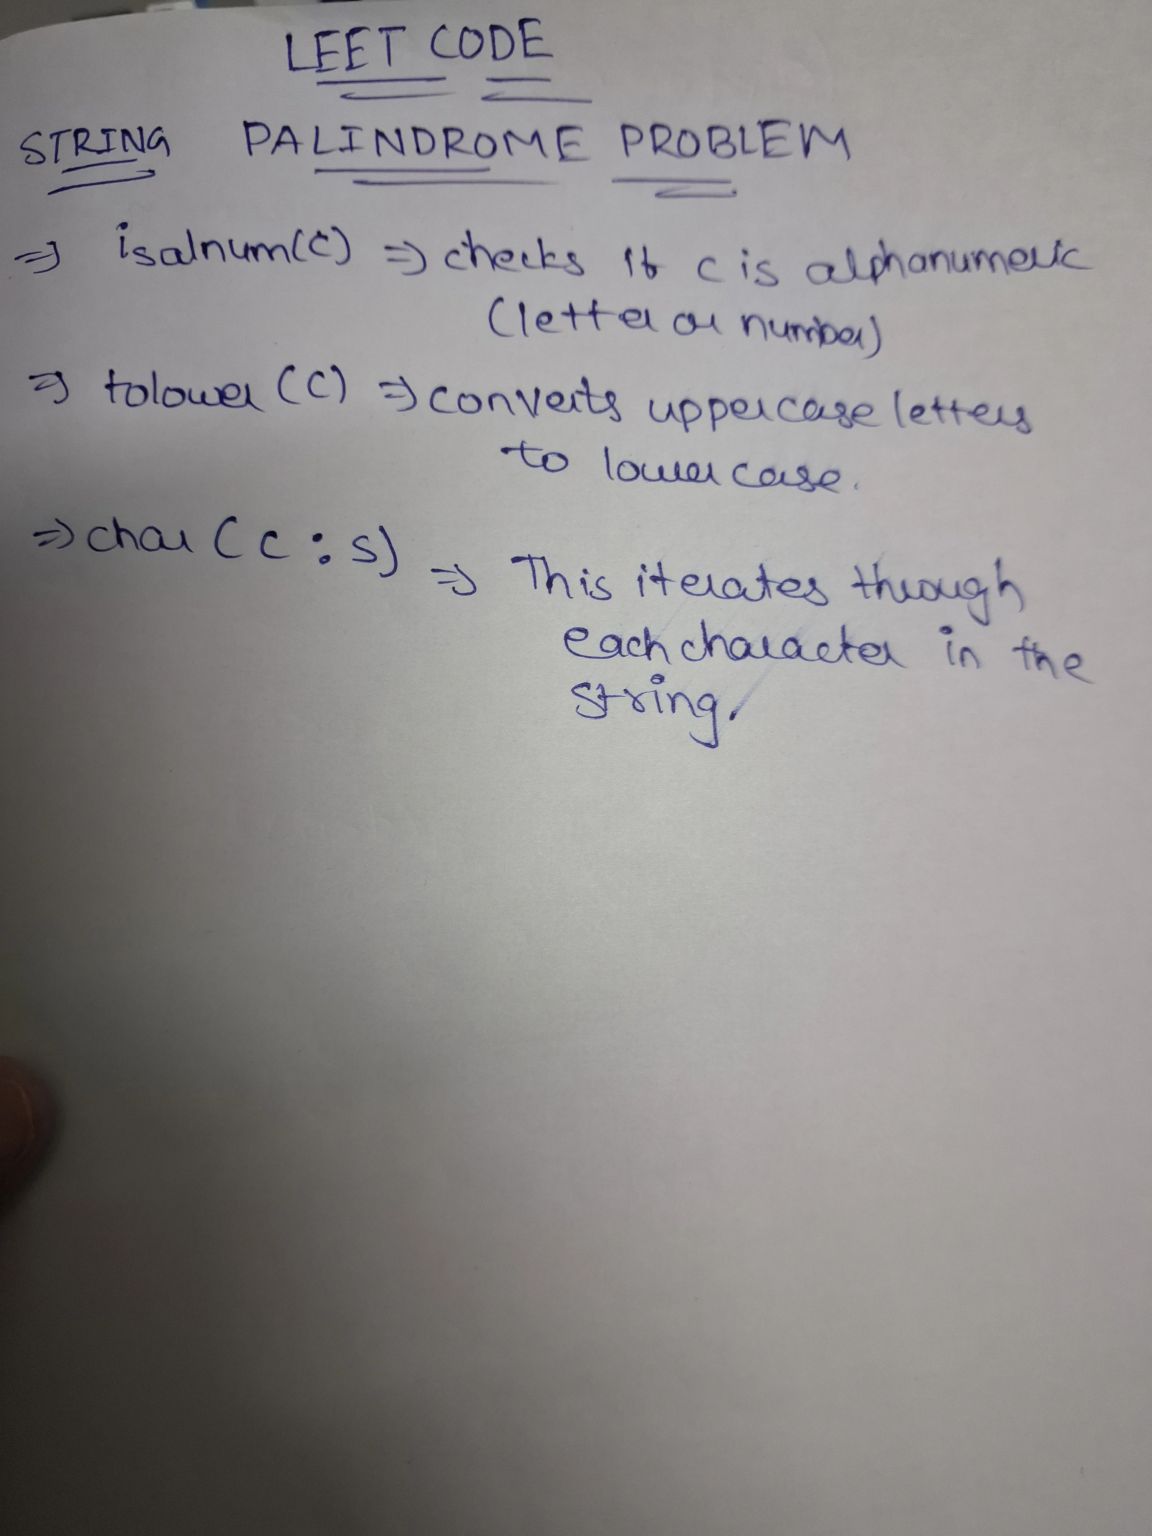 LEET CODE
STRING PALINDROME PROBLEM
⇒ isalnum(c) ⇒ checks if c is alphanumeric
(letter or number)
⇒ tolower (C) ⇒ converts uppercase letters
to lower case.
⇒ char (c : s) ⇒ This iterates through
each character in the
string.